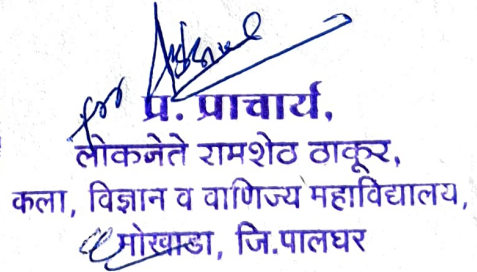 for
प्र. प्राचार्य,
लोकनेते रामशेठ ठाकूर,
कला, विज्ञान व वाणिज्य महाविद्यालय,
मोखाडा, जि.पालघर